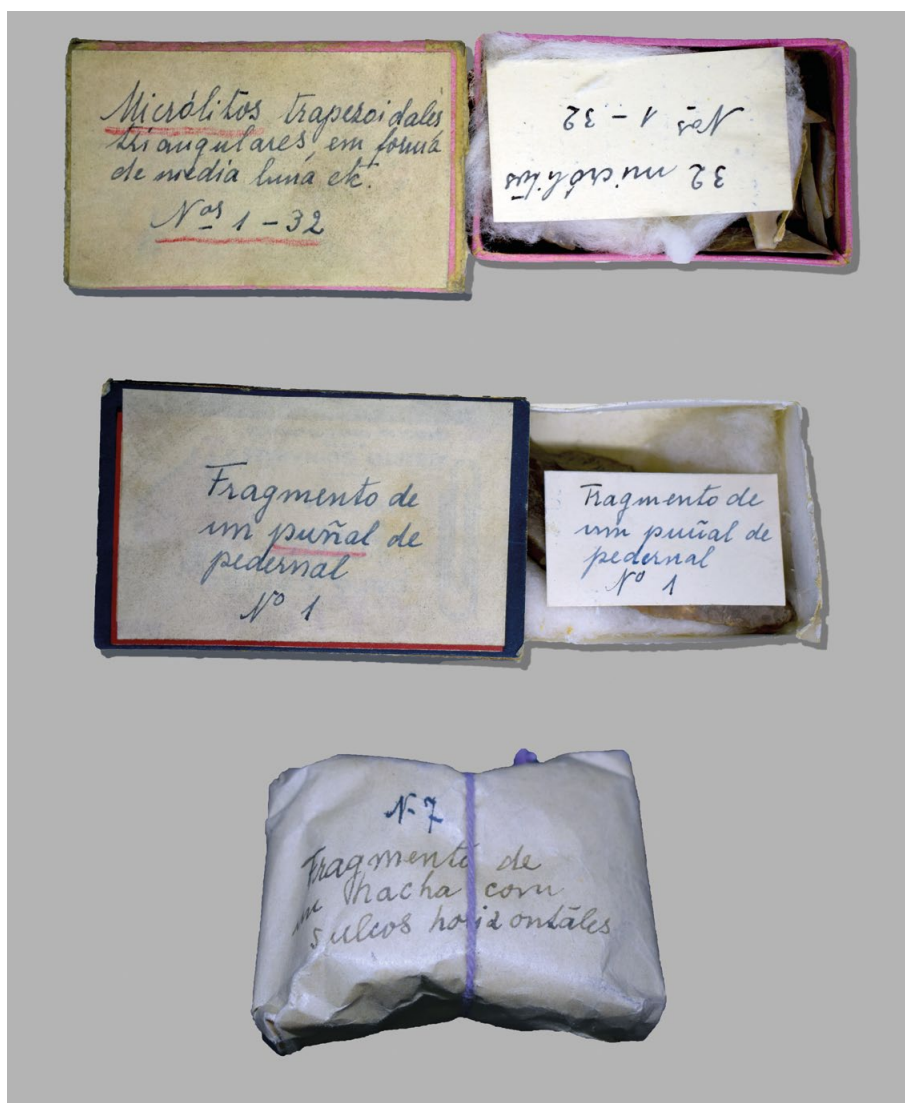 Micrólitos trapezoidales
triangulares, em forma
de media luna etc.
Nos 1 - 32
32 micrólitos
Nos 1 - 32
Fragmento de
um puñal de
pedernal
Nº 1
Fragmento de
um puñal de
pedernal
Nº 1
N- 7
Fragmento de
um hacha com
sulcos horizontáles